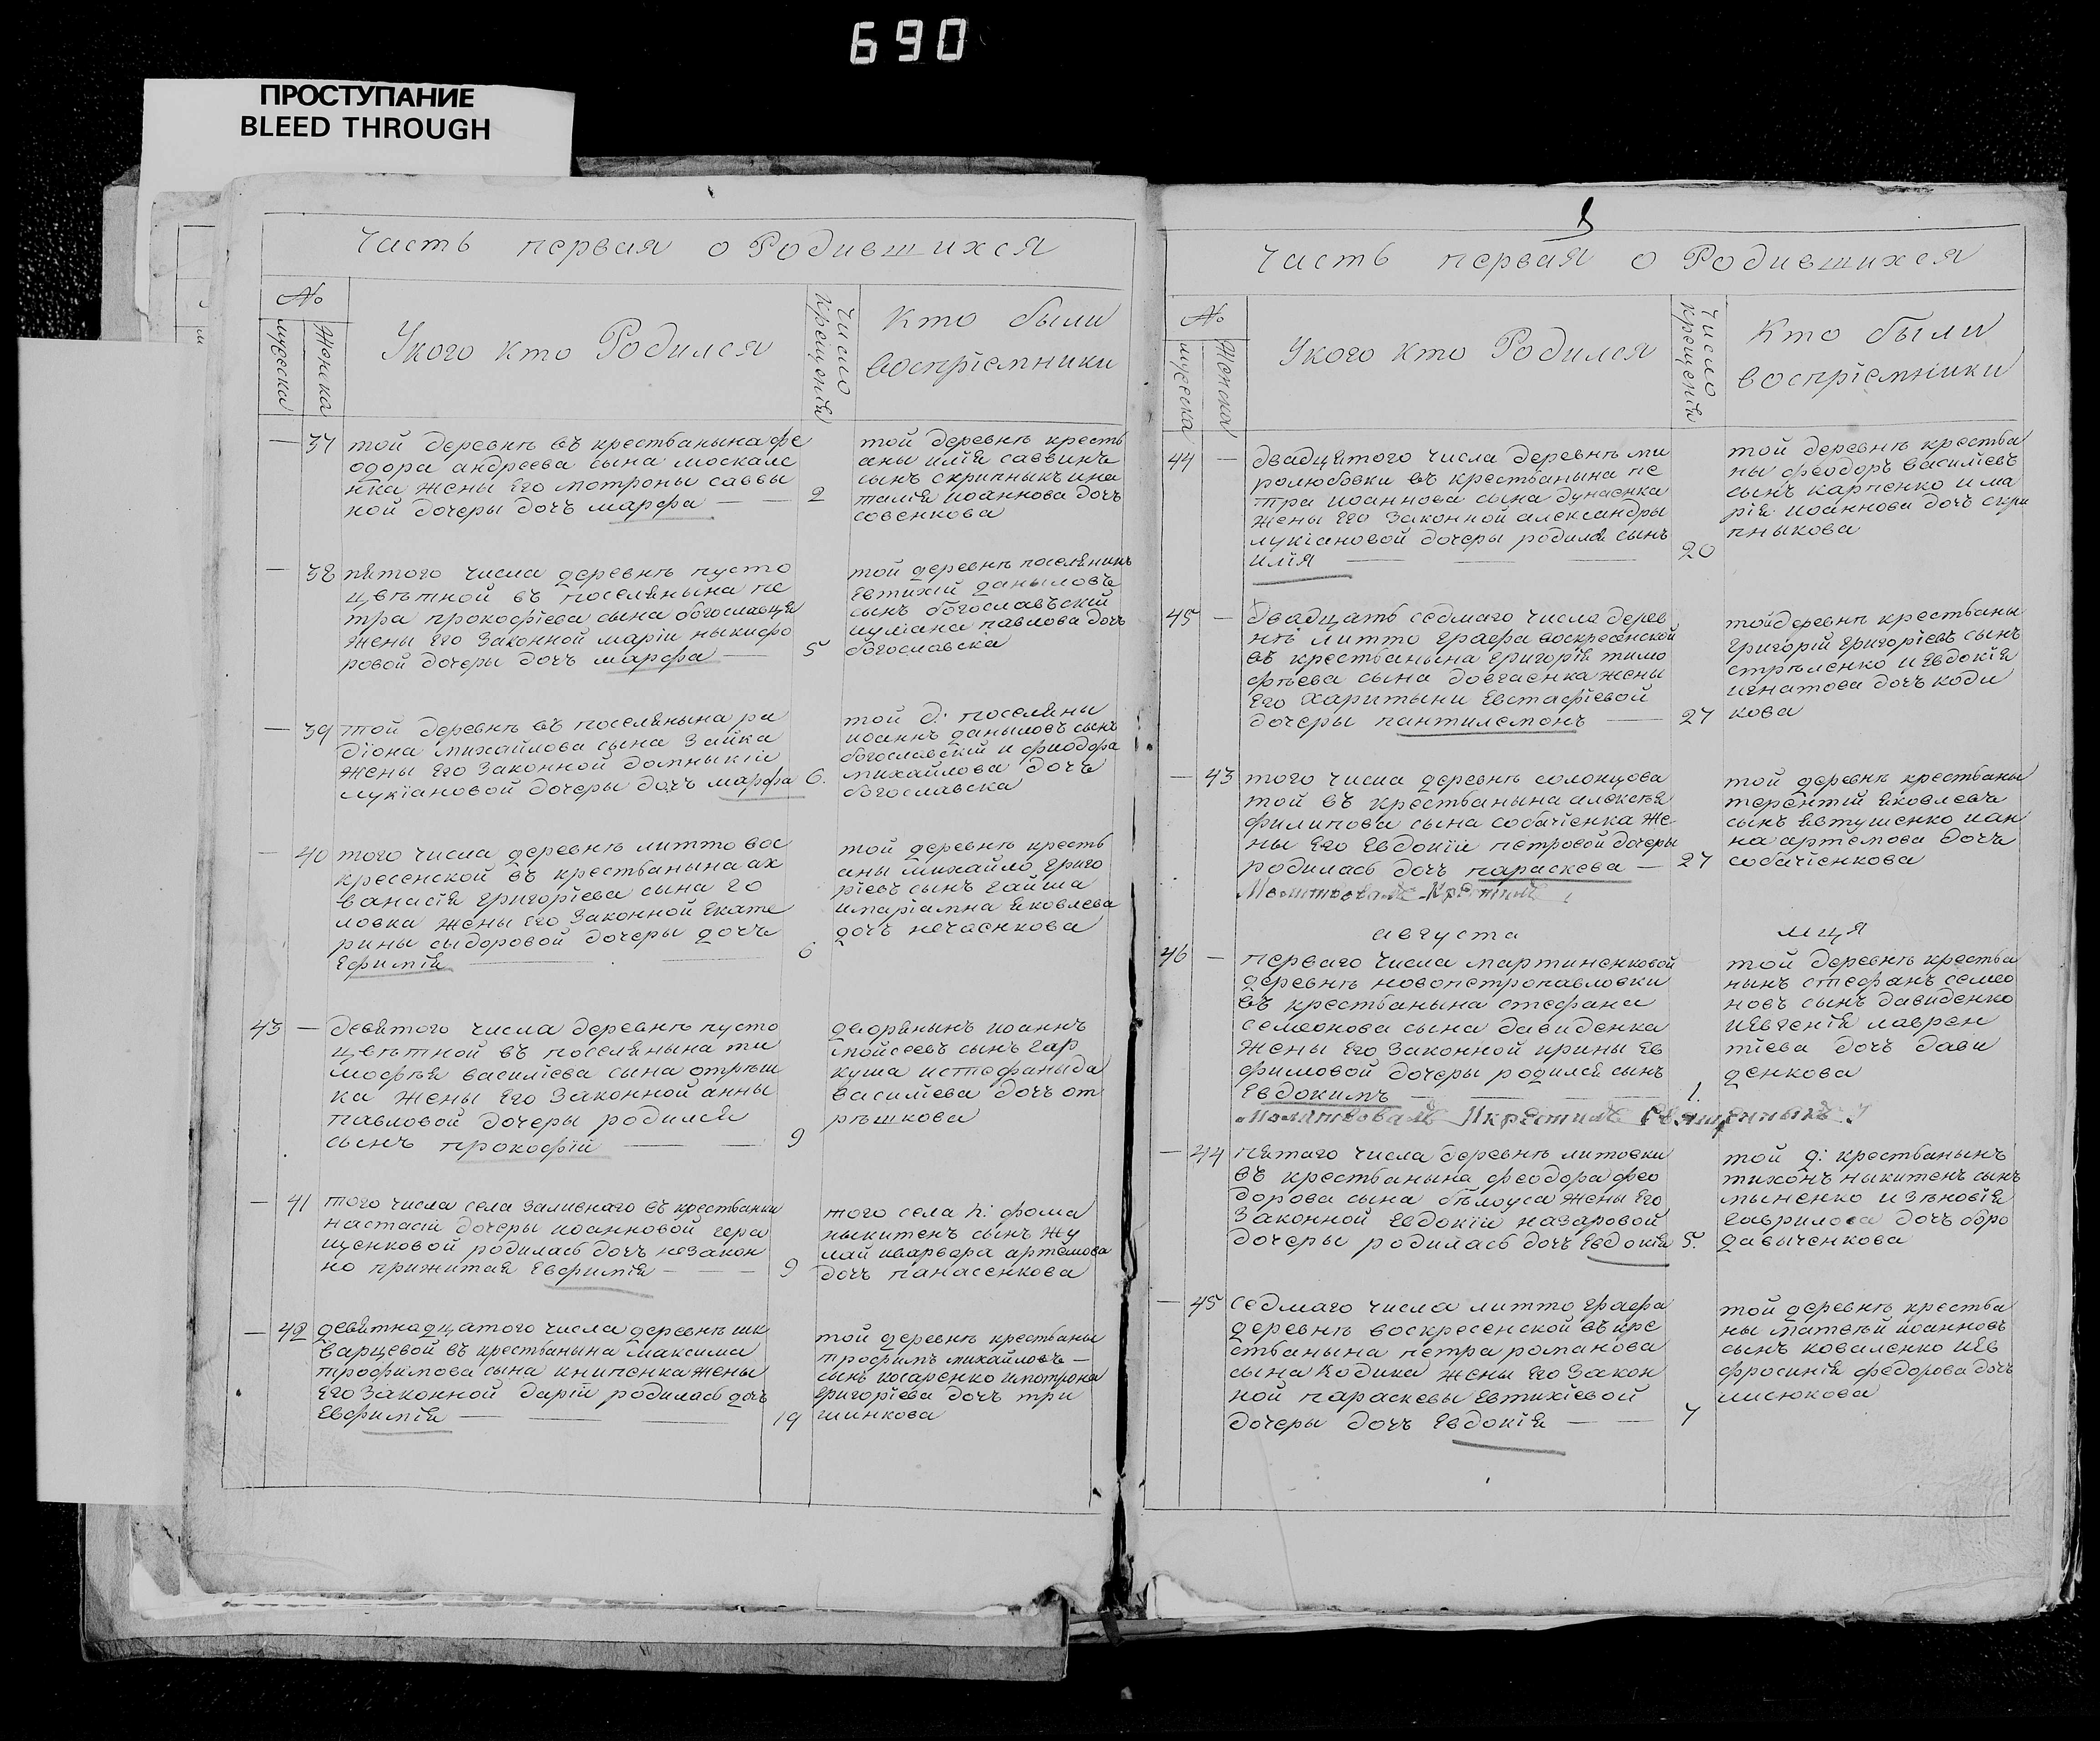 690
ПРОСТУПАНИЕ
BLEED THROUGH
Часть первая о Родившихся
№
мужеска
Женска
Укого кто Родился
Число
крещенія
кто были
воспріемники
— 37
той деревнѣ въ крестьянина фе
одора андреева сына москале
нка жены Его мотроны саввы
ной дочеры дочъ марфа — —
2
той деревнѣ кресть
аны илія саввинъ
сынъ скрипныкъ ина
талія иоаннова дочъ
совенкова
— 38
пятого числа деревнѣ пусто
цвѣтной въ поселянына пе
тра прокофіева сына богославця
жены Его Законной маріи ныкифо
ровой дочеры дочъ марфа —
5
той деревнѣ поселянинъ
Евтихій даныловъ
сынъ богославъскій
иуліана павлова дочъ
богославска
— 39
той деревнѣ въ поселянына ра
діона михайлова сына Зайка
жены Его Законной домныкіи
лукіановой дочеры дочъ марфа
6.
той д: поселяны
иоаннъ даныловъ сынъ
богославскій и фиодора
михайлова дочъ
богославска
— 40
того числа деревнѣ литто вос
кресенской въ крестьянына аѳ
ванасія григоріева сына го
ловка жены Его Законной Екате
рины сыдоровой дочеры дочъ
Ефимія — —
6
той деревнѣ кресть
аны михайло григо
ріевъ сынъ гайша
имаріамна яковлева
дочъ нечаенкова
43 —
девятого числа деревнѣ пусто
цвѣтной въ поселянына ти
мофѣя василіева сына отрѣш
ка жены Его Законной анны
павловой дочеры родился
сынъ прокофій — —
9
дворянынъ иоаннъ
мойсеевъ сынъ гар
куша истефаныда
василіева дочъ от
рѣшкова
— 41
того числа села Залиснаго въ крестьянки
настасіи дочеры иоанновой гера
щенковой родилась дочъ незакон
но прижитая Евфимія — —
9
того села к: фома
ныкитенъ сынъ жу
лай иварвара артемова
дочъ панасенкова
— 42
девятнадцатого числа деревнѣ шк
варцевой въ крестьянына максима
трофимова сына книпенка жены
Его Законной даріи родилась дочъ
Евфимія — — —
19
той деревнѣ крестьаны
трофимъ михайловъ —
сынъ косаренко имотрона
григоріева дочъ три
шинкова
Часть первая о Родившихся
№
мужеска
Женска
Укого кто Родился
Число
крещенія
Кто были
воспріемники
44 —
двадцятого числа деревнѣ ми
ролюбовки въ крестьянына пе
тра иоаннова сына дунаенка
жены Его Законной александры
лукіановой дочеры родился сынъ
илія — — —
20
той деревнѣ крестья
ны феодоръ василіевъ
сынъ карпенко има
рія иоаннова дочъ скри
пныкова
45 —
двадцать седмаго числа дерев
нѣ литто графа воскресенской
въ крестьянына григорія тимо
фѣева сына довгаенка жены
Его Харитыни Евстафіевой
дочеры пантилемонъ —
27
тойдеревнѣ крестьаны
григорій григоріевъ сынъ
стрѣленко иЕвдокія
игнатова дочъ коди
кова
— 43
того числа деревнѣ солонцова
той въ крестьанына алексѣя
филипова сына собачіенка же
ны Его Евдокіи петровой дочеры
родилась дочъ параскева —
27
той деревнѣ крестьаны
терентій яковлевъ
сынъ Евтушенко иан
на артемова дочъ
собачіенкова
Молитвовалъ Крестилъ
августа мця
46 —
перваго числа мартиненковой
деревнѣ новопетропавловки
въ крестьанына стефана
семеонова сына давиденка
жены Его Законной ирины Ев
фимовой дочеры родился сынъ
Евдокимъ — — —
1.
той деревнѣ крестья
нынъ стефанъ семео
новъ сынъ давиденко
иЕвгенія лаврен
тіева дочъ дави
денкова
Молитвовалъ Икрестилъ Священныкъ
— 44
пятаго числа деревнѣ литовки
въ крестьанына феодора фео
дорова сына бѣлоуса жены Его
Законной Евдокіи назаровой
дочеры родилась дочъ Евдокія
5.
той д: крестьанынъ
тихонъ ныкитенъ сынъ
мыненко изѣновія
гаврилова дочъ обро
давыченкова
— 45
седмаго числа литто графа
деревнѣ воскресенской въ кре
стьанына петра романова
сына кодика жены Его Закон
ной параскевы Евтихіевой
дочеры дочъ Евдокія — —
7
той деревнѣ крестьа
ны матвѣй иоанновъ
сынъ коваленко иЕв
фросинія федорова дочъ
лисюкова